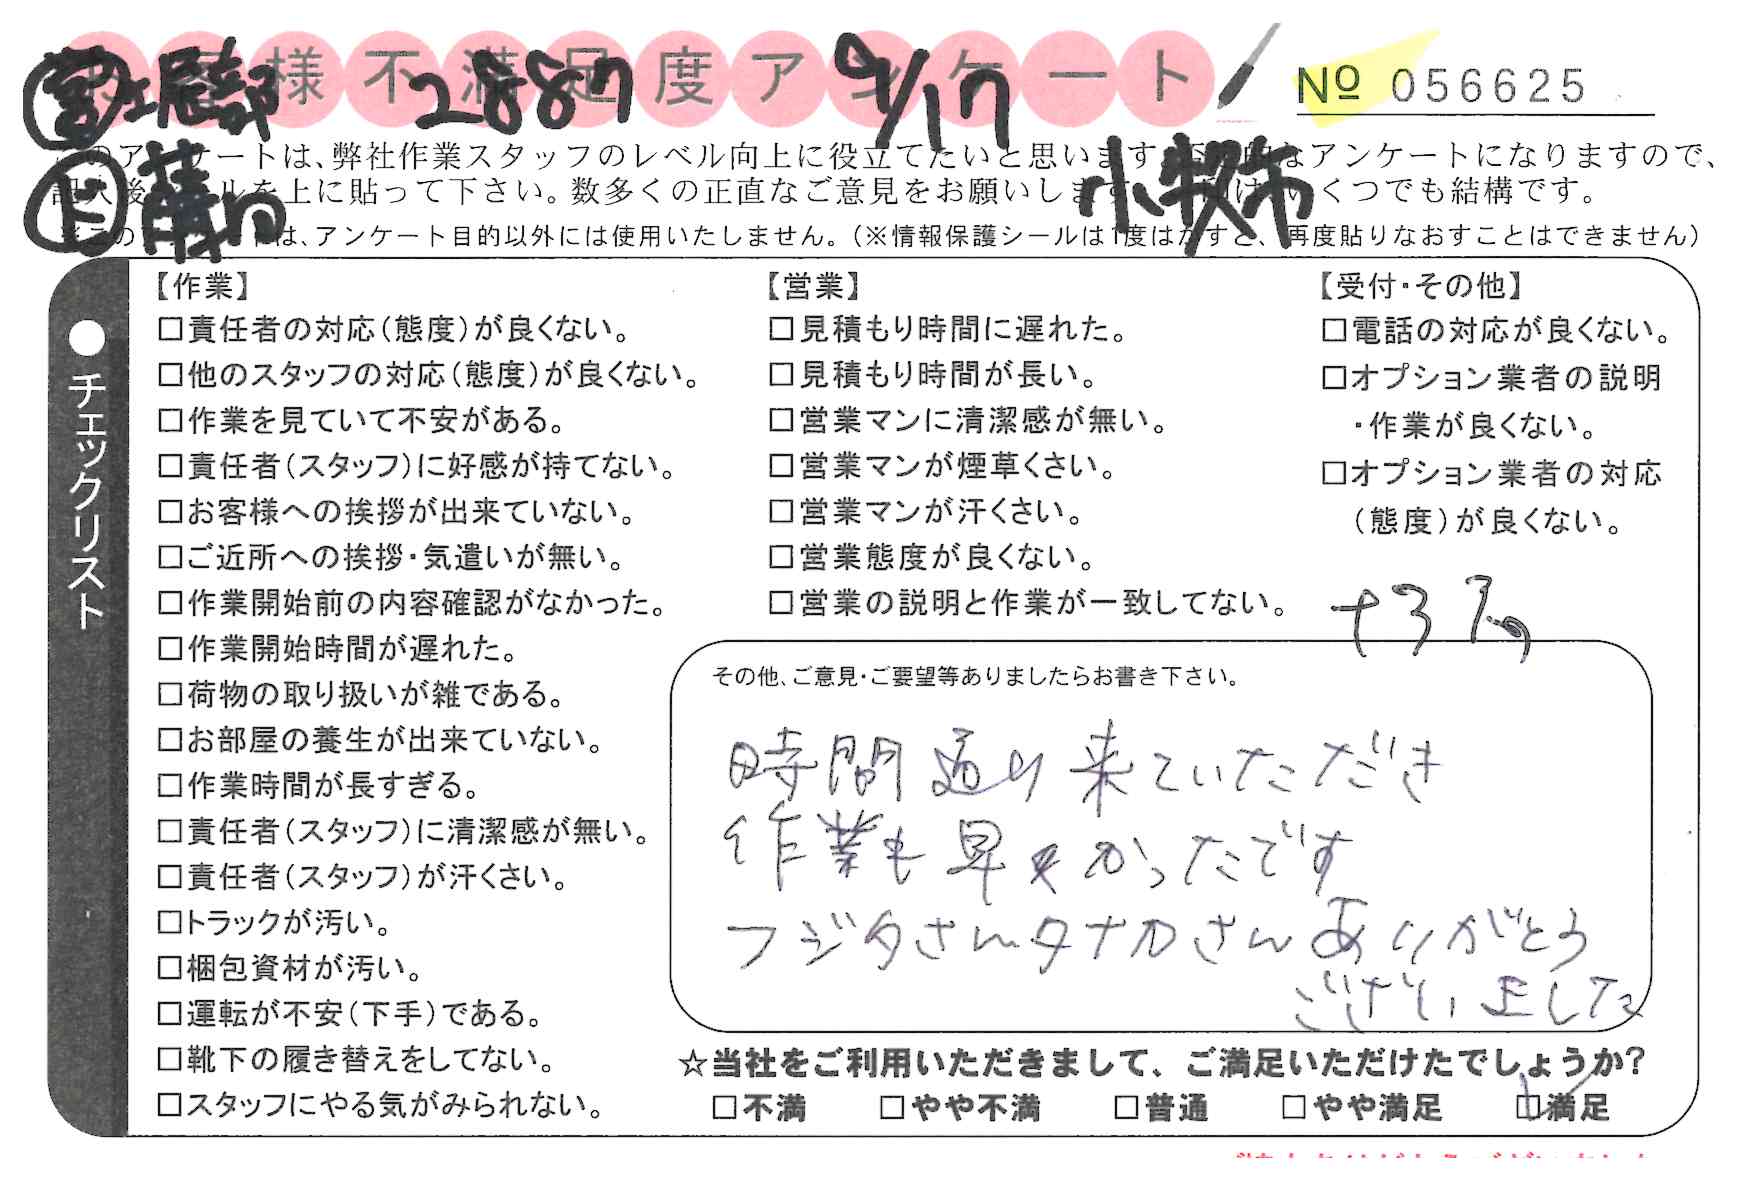 様不満足度アンケート
2887
9/17
№ 056625
のアンケートは、弊社作業スタッフのレベル向上に役立てたいと思います なアンケートになりますので、
小牧市
を上に貼って下さい。数多くの正直なご意見をお願いします くつでも結構です。
は、アンケート目的以外には使用いたしません。（※情報保護シールは1度はがすと、再度貼りなおすことはできません）
●チェックリスト
【作業】
□責任者の対応（態度）が良くない。
□他のスタッフの対応（態度）が良くない。
□作業を見ていて不安がある。
□責任者（スタッフ）に好感が持てない。
□お客様への挨拶が出来ていない。
□ご近所への挨拶・気遣いが無い。
□作業開始前の内容確認がなかった。
□作業開始時間が遅れた。
□荷物の取り扱いが雑である。
□お部屋の養生が出来ていない。
□作業時間が長すぎる。
□責任者（スタッフ）に清潔感が無い。
□責任者（スタッフ）が汗くさい。
□トラックが汚い。
□梱包資材が汚い。
□運転が不安（下手）である。
□靴下の履き替えをしてない。
□スタッフにやる気がみられない。
【営業】
□見積もり時間に遅れた。
□見積もり時間が長い。
□営業マンに清潔感が無い。
□営業マンが煙草くさい。
□営業マンが汗くさい。
□営業態度が良くない。
□営業の説明と作業が一致してない。
【受付・その他】
□電話の対応が良くない。
□オプション業者の説明
・作業が良くない。
□オプション業者の対応
（態度）が良くない。
その他、ご意見・ご要望等ありましたらお書き下さい。
時間通り来ていただき
作業も早くかったです
フジタさんタナカさんありがとう
ございました
☆当社をご利用いただきまして、ご満足いただけたでしょうか？
□不満 □やや不満 □普通 □やや満足 ☑満足